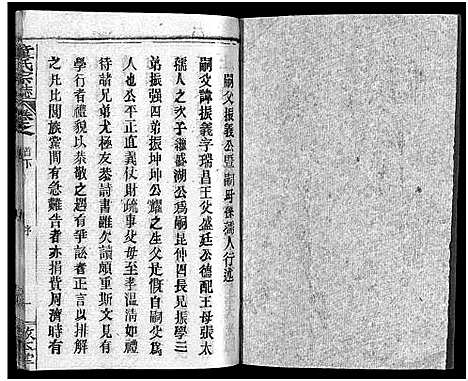 嗣父振義公暨嗣母孫孺人行述
嗣父諱振義字瑞昌王父盛廷公德配王母張太
孺人之次子繼盛湖公爲嗣昆仲四長兄振學三
弟振强四弟振坤坤公耀之生父是慨自嗣父爲
人也公平正直義仗財疏事父母至孝溫凊如儀
待諸兄弟尤極友恭詩書雖欠讀頗重斯文見有
學行者禮貌以恭敬之遇有爭訟者正言以排解
之凡比閭族黨間有急難告者亦捐貲周濟時有
章氏宗誌
卷之
首下
序
一